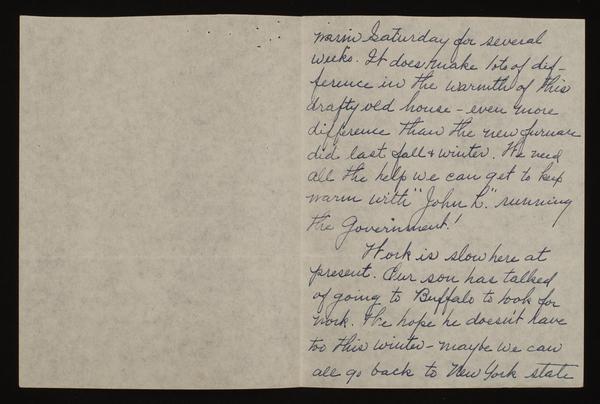 warm Saturday for several
weeks. It does make lots of dif-
ference in the warmth of this
drafty old house - even more
difference than the new furnace
did last fall & winter. We need
all the help we can get to keep
warm with "John L." running
the Government!
Work is slow here at
present. Our son has talked
of going to Buffalo to look for
work. We hope he doesn't have
to this winter - maybe we can
all go back to New York state